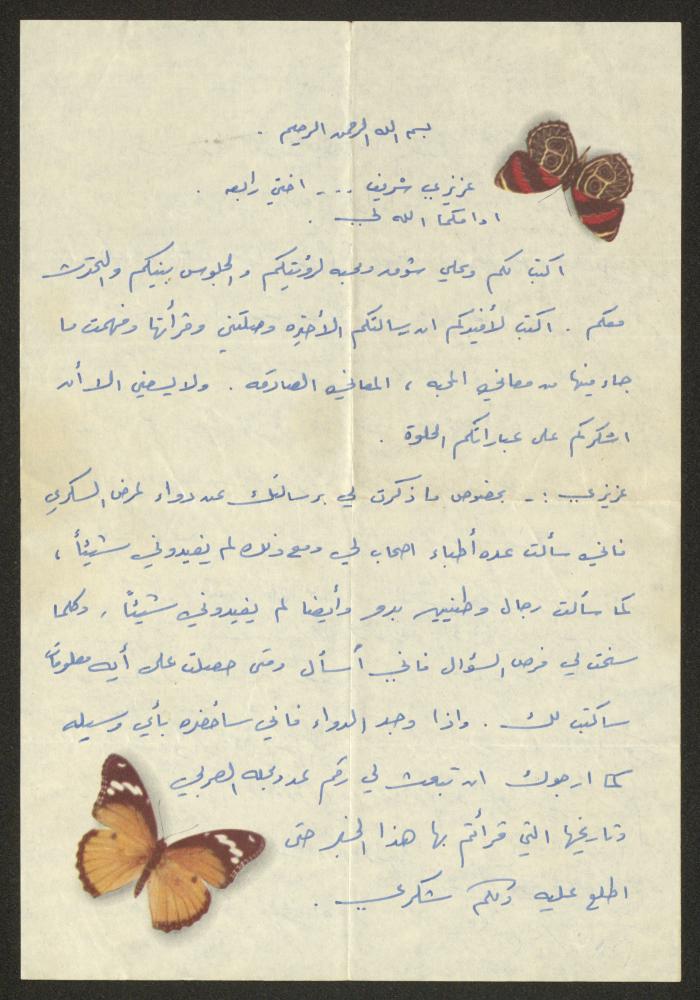 بسم الله الرحمن الرحيم .
عزيزي شريف ... اختي رابعه .
ادامكما الله لي .
اكتب لكم وكلي شوق ومحبه لرؤيتكم والجلوس بينكم والتحدث
معكم . اكتب لأفيدكم ان رسالتكم الأخيره وصلتني وقرأتها وفهمت ما
جاء فيها من معاني المحبه ، المعاني الصادقه . ولا يسعني الا أن
اشكركم على عباراتكم الحلوة .
عزيزي :- بخصوص ما ذكرت لي برسالتك عن دواء لمرض السكري
فاني سألت عده أطباء اصحاب لي ومع ذلك لم يفيدوني شيئاً ،
كما سألت رجال وطنيين بدو وأيضا لم يفيدوني شيئاً ، وكلما
سنحت لي فرص السؤال فاني أسأل ومتى حصلت على أيه معلومات
ساكتب لك . واذا وجد الدواء فاني سأحضره بأي وسيله
كما ارجوك ان تبعث لي رقم عدد مجله العربي
وتاريخها التي قرأتم بها هذا الخبر حتى
اطلع عليه ولكم شكري .